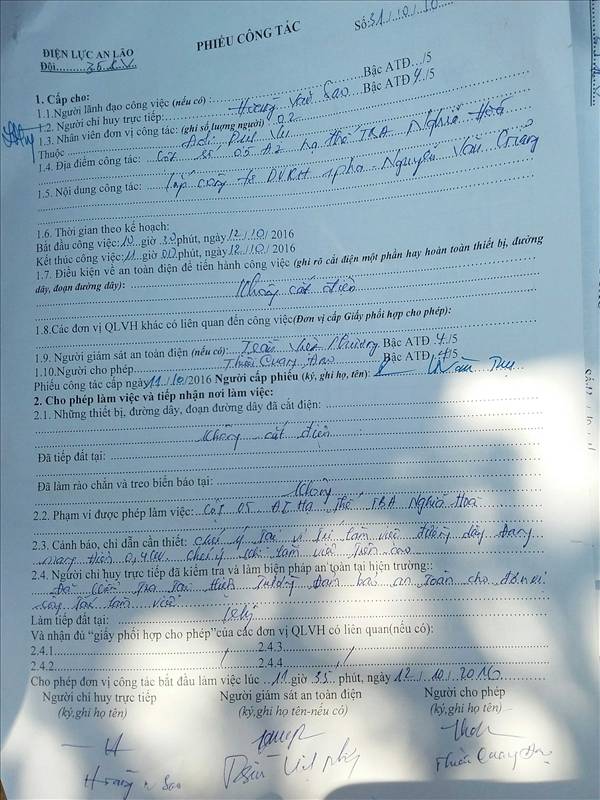 ĐIỆN LỰC AN LÃO
PHIẾU CÔNG TÁC
Số: 31/10/10
Đội..........35KV
1. Cấp cho:
1.1.Người lãnh đạo công việc (nếu có) : ..........Bậc ATĐ.../5
1.2. Người chỉ huy trực tiếp: Hoàng Văn Sao Bậc ATĐ 4/5
1.3. Nhân viên đơn vị công tác: (ghi số lượng người) 02
Thuộc
1.4. Địa điểm công tác: Cột 05 hạ thế TBA Nghĩa Hoà
1.5. Nội dung công tác: Lắp công tơ 1 pha Nguyễn Văn
1.6. Thời gian theo kế hoạch:
Bắt đầu công việc: 10 giờ 30 phút, ngày 12/10/2016
Kết thúc công việc: 11 giờ 00 phút, ngày 12/10/2016
1.7. Điều kiện về an toàn điện để tiến hành công việc (ghi rõ cắt điện một phần hay hoàn toàn thiết bị, đường
dây, đoạn đường dây):
Không cắt điện
1.8.Các đơn vị QLVH khác có liên quan đến công việc(Đơn vị cấp Giấy phối hợp cho phép):
1.9. Người giám sát an toàn điện (nếu có): Bậc ATĐ 4/5
1.10.Người cho phép Thiều Quang Bậc ATĐ 4/5
Phiếu công tác cấp ngày 11/10/2016 Người cấp phiếu (ký, ghi họ, tên):
2. Cho phép làm việc và tiếp nhận nơi làm việc:
2.1. Những thiết bị, đường dây, đoạn đường dây đã cắt điện:
Không cắt điện
Đã tiếp đất tại:
Đã làm rào chắn và treo biển báo tại:
Không
2.2. Phạm vi được phép làm việc: Cột 05 Hạ thế TBA Nghĩa Hoà
2.3. Cảnh báo, chỉ dẫn cần thiết: chú ý tại vị trí làm việc đường dây đang
mang điện 0,4KV. chú ý khi làm việc trên cao
2.4. Người chỉ huy trực tiếp đã kiểm tra và làm biện pháp an toàn tại hiện trường::
Đã kiểm tra tại hiện trường Đảm bảo an toàn cho đơn vị
làm việc
Làm tiếp đất tại:
Và nhận đủ “giấy phối hợp cho phép”của các đơn vị QLVH có liên quan(nếu có):
2.4.1.......... 2.4.3..........
2.4.2.......... 2.4.4..........
Cho phép đơn vị công tác bắt đầu làm việc lúc 11 giờ 35 phút, ngày 12/10/2016
Người chỉ huy trực tiếp Người giám sát an toàn điện Người cho phép
(ký,ghi họ tên) (ký,ghi họ tên-nếu có) (ký,ghi họ tên)
Hoàng V Sao Thiều Quang